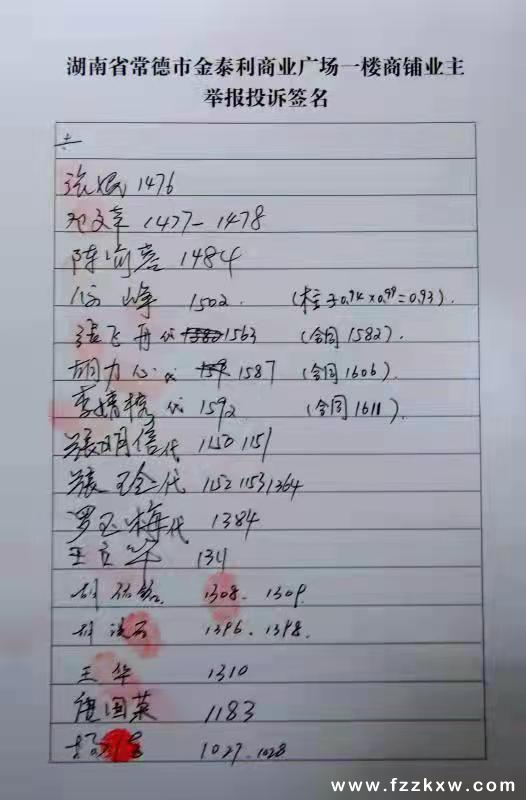 湖南省常德市金泰利商业广场一楼商铺业主
举报投诉签名
张 1476
邓文章 1477-1478
陈 1484
峰 1502. (柱子0.94×0.99=0.93).
张飞舟代 1563 (合同1582).
胡力心代 1587 (合同1606).
李 代 1592 (合同1611).
张明信代 1150 1151
张 代 1152 1153 1364
罗玉梅代 1384
王立华 1311
1308. 1309.
1396. 1398.
王华 1310
唐国英 1183
1027. 1028
www.fzzkxw.com